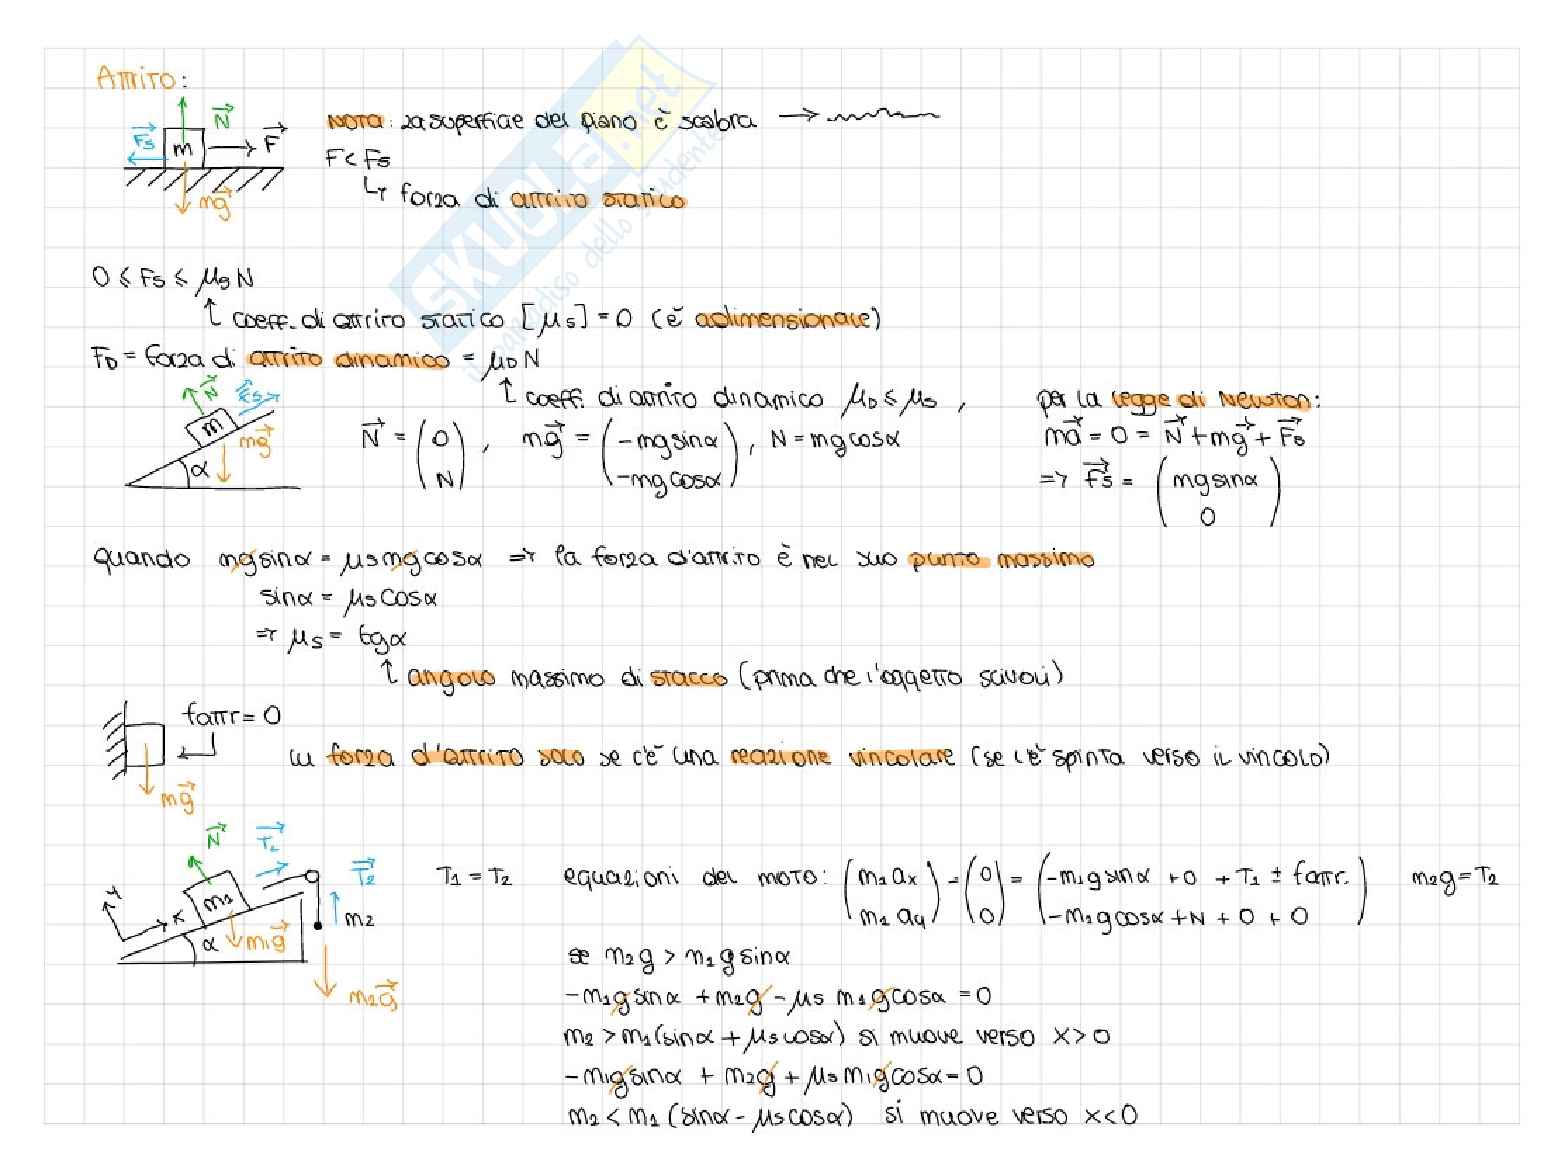 Attrito:
N⃗
F⃗s
m
F⃗
mg⃗
NOTA: La superficie del piano è scabra →
F < Fs
↳ forza di attrito statico
SKUOLA.net
il paradiso dello studente
0 ≤ Fs ≤ μs N
↑ coeff. di attrito statico [μs] = 0 (è adimensionale)
FD = forza di attrito dinamico = μD N
↑ coeff. di attrito dinamico μD ≤ μs ,
per la legge di Newton:
N⃗
F⃗s
m
mg⃗
α
N⃗ = (0 N) , mg⃗ = (-mg sinα -mg cosα) , N = mg cosα
ma⃗ = 0 = N⃗ + mg⃗ + F⃗D
=> F⃗s = (mg sinα 0)
quando mg sinα = μs mg cosα => la forza d'attrito è nel suo punto massimo
sinα = μs cosα
=> μs = tgα
↑ angolo massimo di stacco (prima che l'oggetto scivoli)
fattr = 0
mg⃗
forza d'attrito solo se c'è una reazione vincolare (se c'è spinta verso il vincolo)
N⃗
T⃗1
T⃗2
y
x
m1
m2
α
m1g⃗
m2g⃗
T1 = T2 equazioni del moto: (m1 ax m1 ay) = (0 0) = (-m1g sinα + 0 + T1 ± fattr. -m1g cosα + N + 0 + 0) m2g = T2
se m2g > m1g sinα
-m1g sinα + m2g - μs m1g cosα = 0
m2 > m1(sinα + μs cosα) si muove verso x > 0
-m1g sinα + m2g + μs m1g cosα = 0
m2 < m1 (sinα - μs cosα) si muove verso x < 0